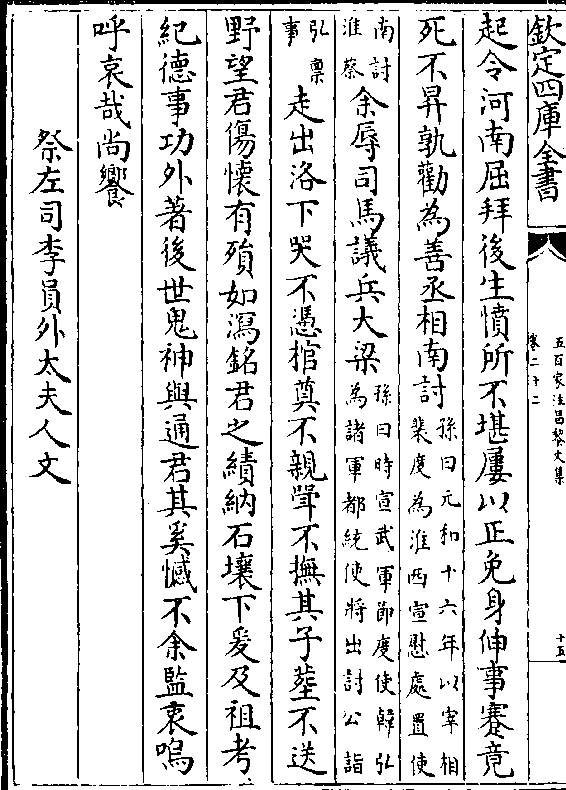 欽定四庫全書
五百家注昌黎文集
卷二十二
十五
起令河南屈拜後生憤所不堪屢以正免身伸事蹇竟
死不昇孰勸為善丞相南討孫曰元和十六年以宰相裴度為淮西宣慰處置使
南討淮蔡余辱司馬議兵大梁孫曰時宣武軍節度使韓弘為諸軍都統使將出討公詣
弘禀事走出洛下哭不憑棺奠不親斝不撫其子葬不送
野望君傷懷有殞如瀉銘君之績納石壤下爰及祖考
紀德事功外著後世鬼神與通君其奚憾不余監衷嗚
呼哀哉尚饗
祭左司李員外太夫人文